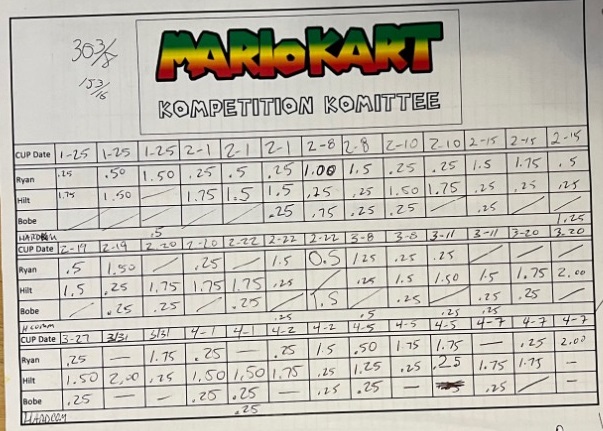 30 3/8
15 3/16
MARIOKART
KOMPETITION KOMITTEE
CUP Date 1-25 1-25 1-25 2-1 2-1 2-1 2-8 2-8 2-10 2-10 2-15 2-15 2-15
Ryan .25 .50 1.50 .25 .5 .25 1.00 1.5 .25 .25 1.5 1.75 .5
Hilt 1.75 1.50 / 1.75 1.5 1.5 .25 .25 1.50 1.75 .25 .25 .25
Bobe / / / / / .25 .75 .25 .25 / / / 1.25
.5
CUP Date 2-19 2-19 2-20 2-20 2-22 2-22 2-22 3-8 3-8 3-11 3-11 3-20 3-20
Ryan .5 1.50 / .25 / 1.5 0.5 1.25 .25 .25 / / /
Hilt 1.5 .25 1.75 1.75 1.75 .25 / .25 1.5 1.50 1.5 1.75 2.00
Bobe / .25 .25 / .25 / 1.5 / .25 / .25 .25 /
.25 .5 .25 .25
CUP Date 3-27 3/31 3/31 4-1 4-1 4-2 4-2 4-5 4-5 4-5 4-7 4-7 4-7
Ryan .25 — 1.75 .25 — .25 1.5 .50 1.75 1.75 — .25 2.00
Hilt 1.50 2.00 .25 1.50 1.50 1.75 .25 1.25 .25 .25 1.75 1.75 —
Bobe .25 — — .25 .25 — .25 .25 — .25 / —
.25